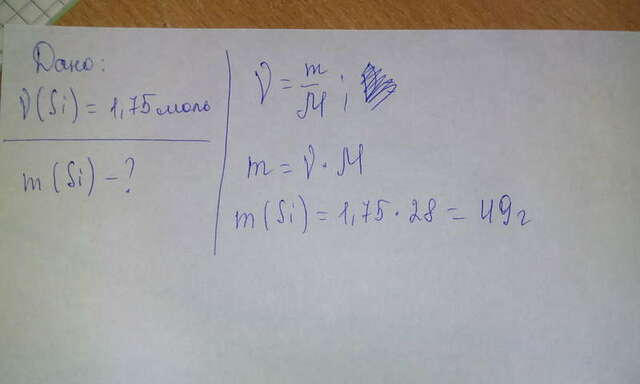 Дано:
ν(Si) = 1,75 моль
m(Si) – ?
ν = m/M;
m = ν · M
m(Si) = 1,75 · 28 = 49 г